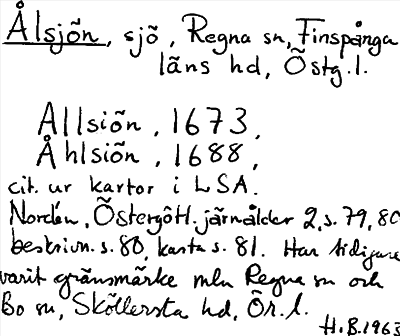 Ålsjön, sjö, Regna sn, Finspånga
läns hd, Östg.l.
Ållsiön, 1673,
Åhlsiön, 1688,
cit. ur kartor i LSA.
Nordén, Östergötl. järnålder 2, s. 79, 80
beskrivn. s. 80, karta s. 81. Har tidigare
varit gränsmärke mln Regna sn och
Bo sn, Sköllersta hd, Ör. l.
H.B. 1963